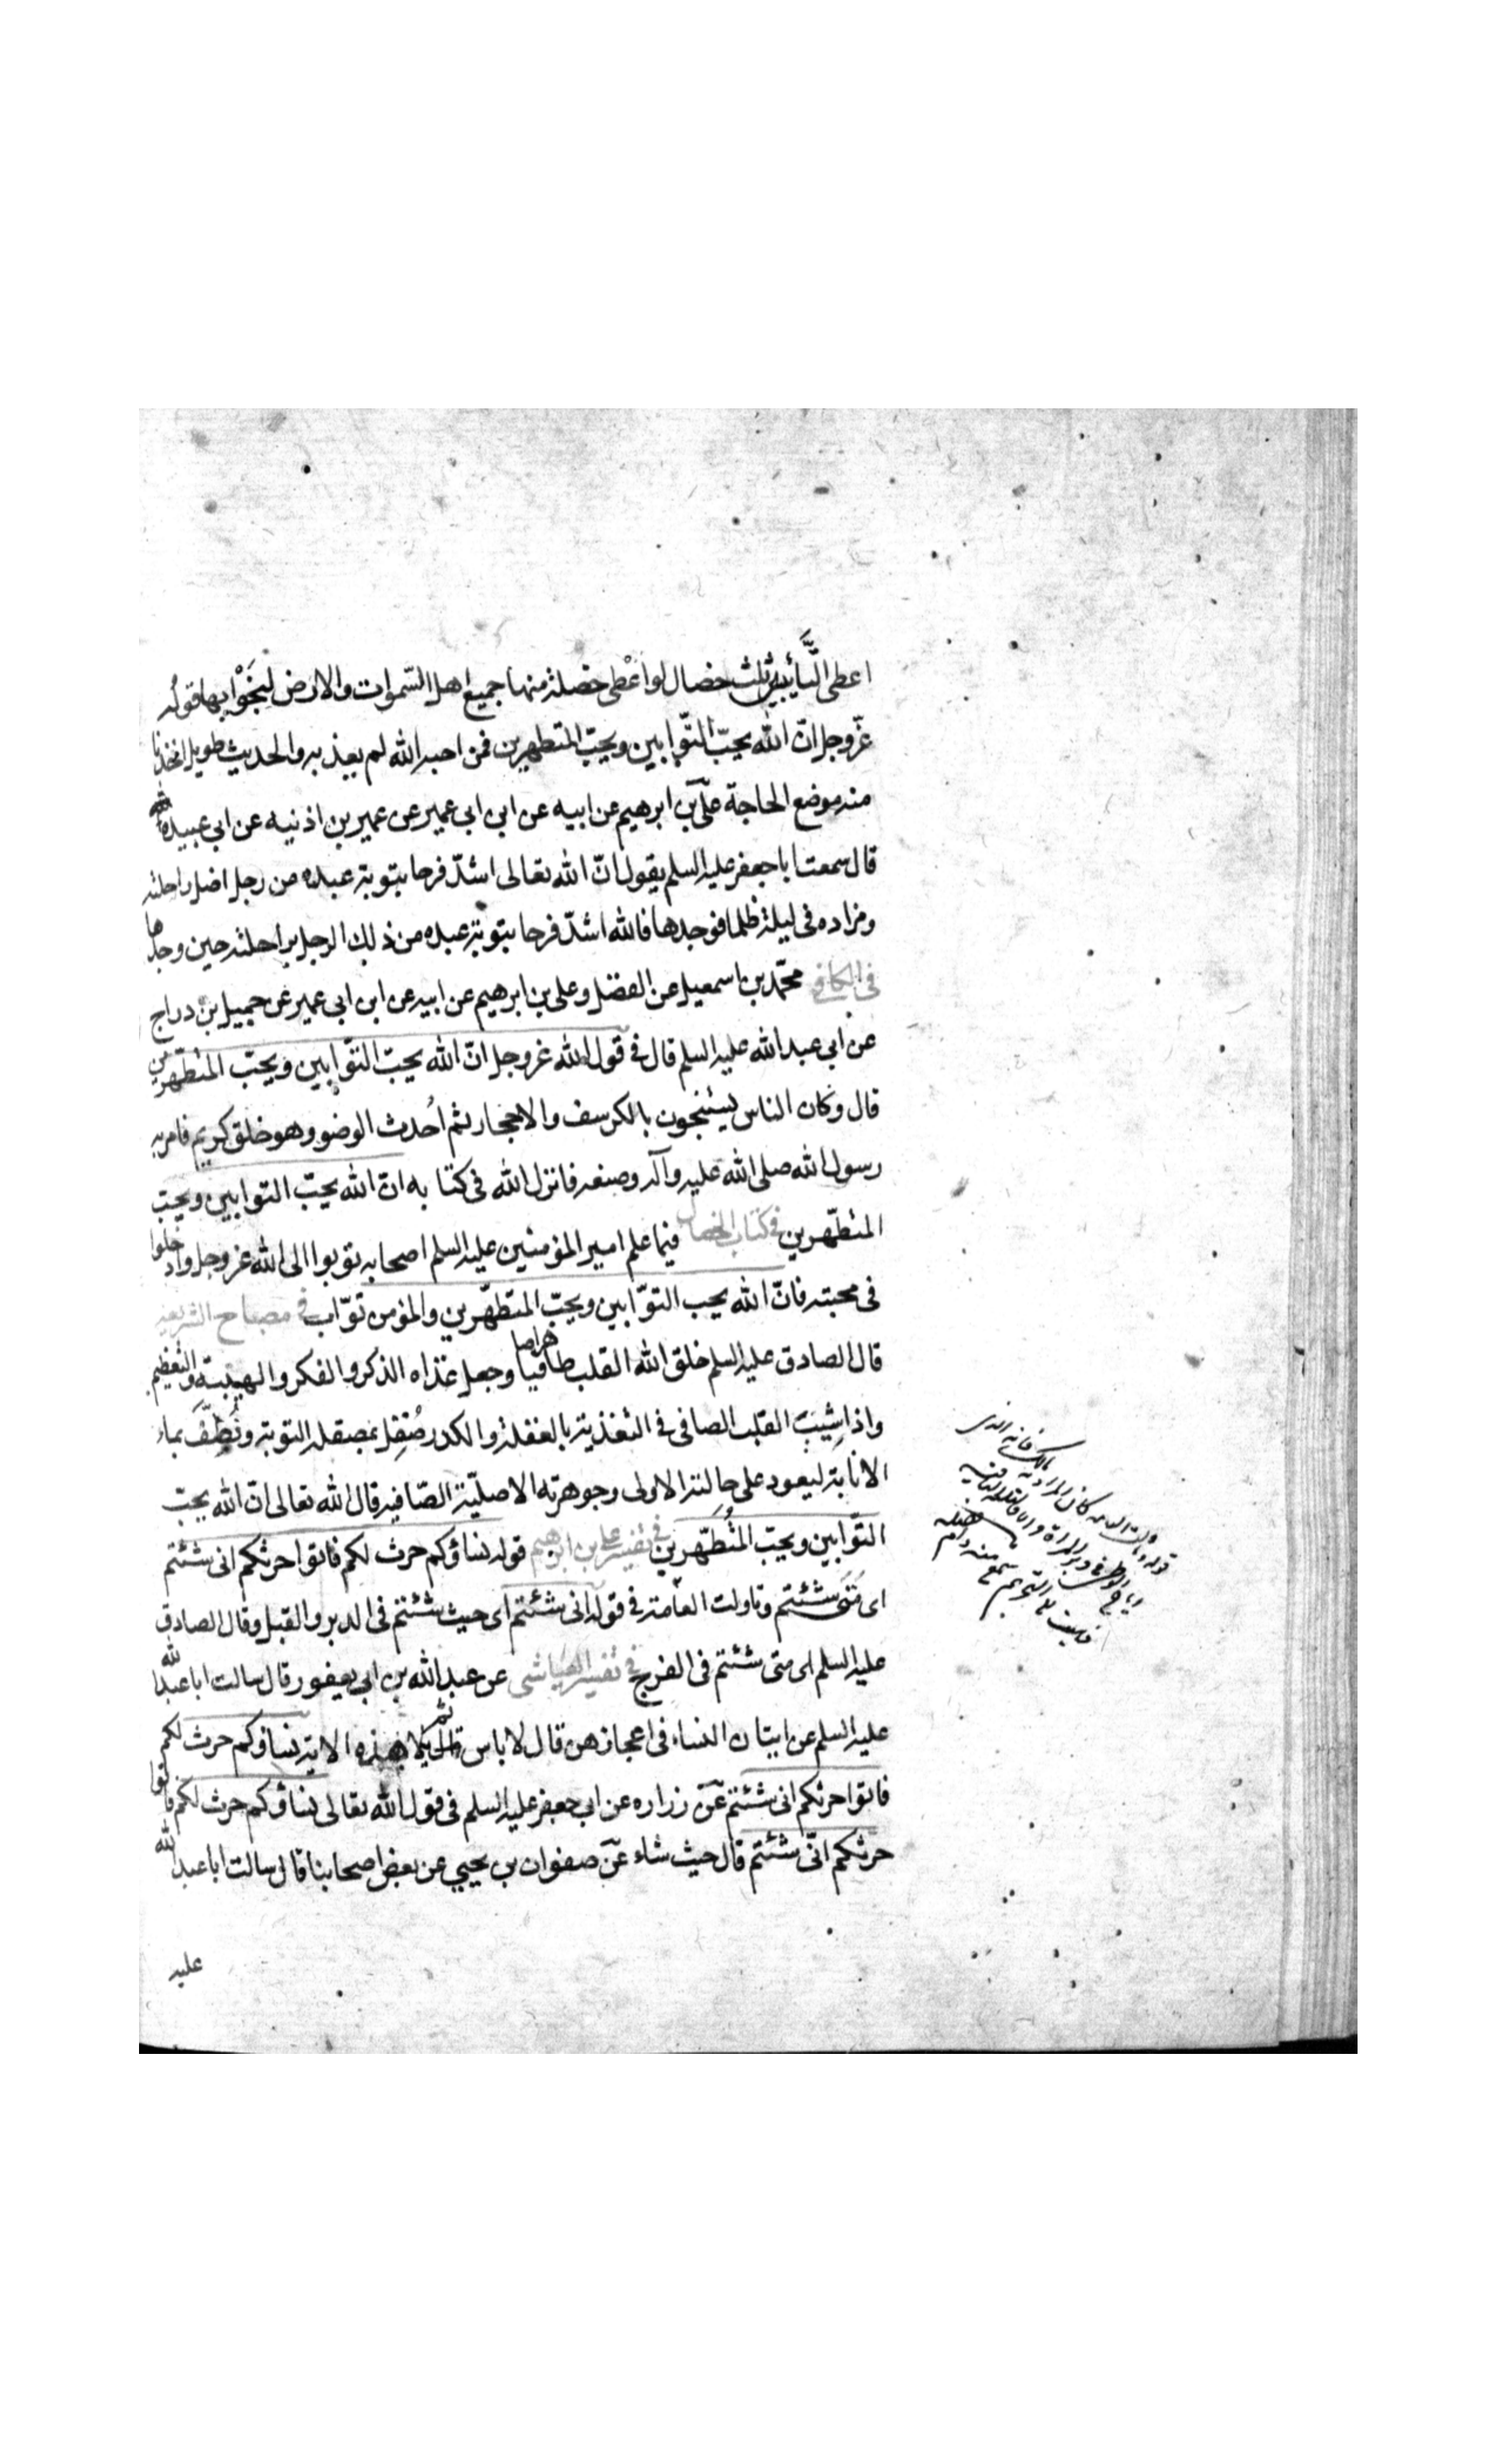 اعطى التَّائبين ثلث خصال لو اعْطى خصلة منها جميع اهل السّموات والارض لنَجَوْا بها قولُه
عزّوجل انّ الله يحبّ التّوابين ويحبّ المتطهرين فمن احبه الله لم يعذبه والحديث طويل اخذنا
منه موضع الحاجة علىّ بن ابرهيم عن ابيه عن ابن ابى عمير عن عمير بن اذنيه عن ابى عبيدة
قال سمعت ابا جعفر عليه السلم يقول انّ الله تعالى اشدّ فرحا بتوبة عبده من رجل اضل راحلته
ومزاده فى ليلة ظلما فوجدها فالله اشدّ فرحا بتوبة عبده من ذلك الرجل براحلته حين وجدها
فى الكافى محمّد بن اسمعيل عن الفضل وعلى بن ابرهيم عن ابيه عن ابن ابى عمير عن جميل بن دراج
عن ابى عبد الله عليه السلم قال فى قول الله عزوجل انّ الله يحبّ التوّابين ويحبّ المتطهّرين
قال وكان الناس يستنجون بالكرسف والاحجار ثم اُحدث الوضو وهو خلق كريم فامر به
رسول الله صلى الله عليه وآله وصنعه فانزل الله فى كتابه ان الله يحبّ التوابين ويحبّ
المتطهّرين فى كتاب الخصال فيما علم امير المؤمنين عليه السلم اصحابه توبوا الى الله عزوجل وادخلوا
فى محبته فانّ الله يحب التوّابين ويحبّ المتطهّرين والمؤمن توّاب فى مصباح الشريعة
قال الصادق عليه السلم خلق الله القلب طاهرا صافيا وجعل غذاه الذكر والفكر والهيبة والتعظيم
واذا شِيبَ القلب الصافى فى التغذية بالغفلة والكدر صُقِل بمصقلة التوبة ونُظِّفَ بماء
الانابة ليعود على حالته الاولى وجوهرته الاصليّة الصّافيه قال الله تعالى انّ الله يحبّ
التّوابين ويحبّ المتُطَهّرين فى تفسير على بن ابرهيم قوله نساؤكم حرث لكم فاتوا حرثكم انى شئتم
اى مَتَى شئتم وتاولت العامة فى قوله انى شئتم اى حيث شئتم فى الدبر والقبل وقال الصادق
عليه السلم اى متى شئتم فى الفرج فى تفسير العياشى عن عبد الله بن ابى يعفور قال سالت ابا عبد الله
عليه السلم عن اتيان النساء فى اعجازهن قال لا باس ثم تلا هذه الاية نساؤكم حرث لكم
فاتوا حرثكم انى شئتم عن زراره عن ابى جعفر عليه السلم فى قول الله تعالى نساؤكم حرث لكم فاتوا
حرثكم انّى شئتم قال حيث شاء عن صفوان بن يحيى عن بعض اصحابنا قال سالت ابا عبد الله
عليه